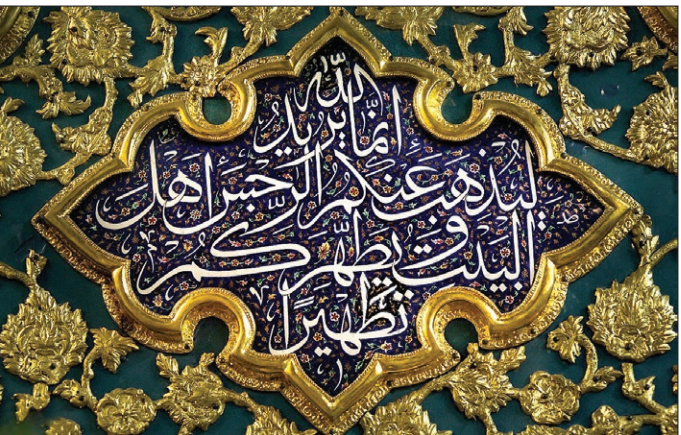 إنّما يريد الله
ليُذهِبَ عَنكُمُ الرِّجسَ أهلَ
البَيتِ و يُطَهِّرَكُم
تَطهِيرًا